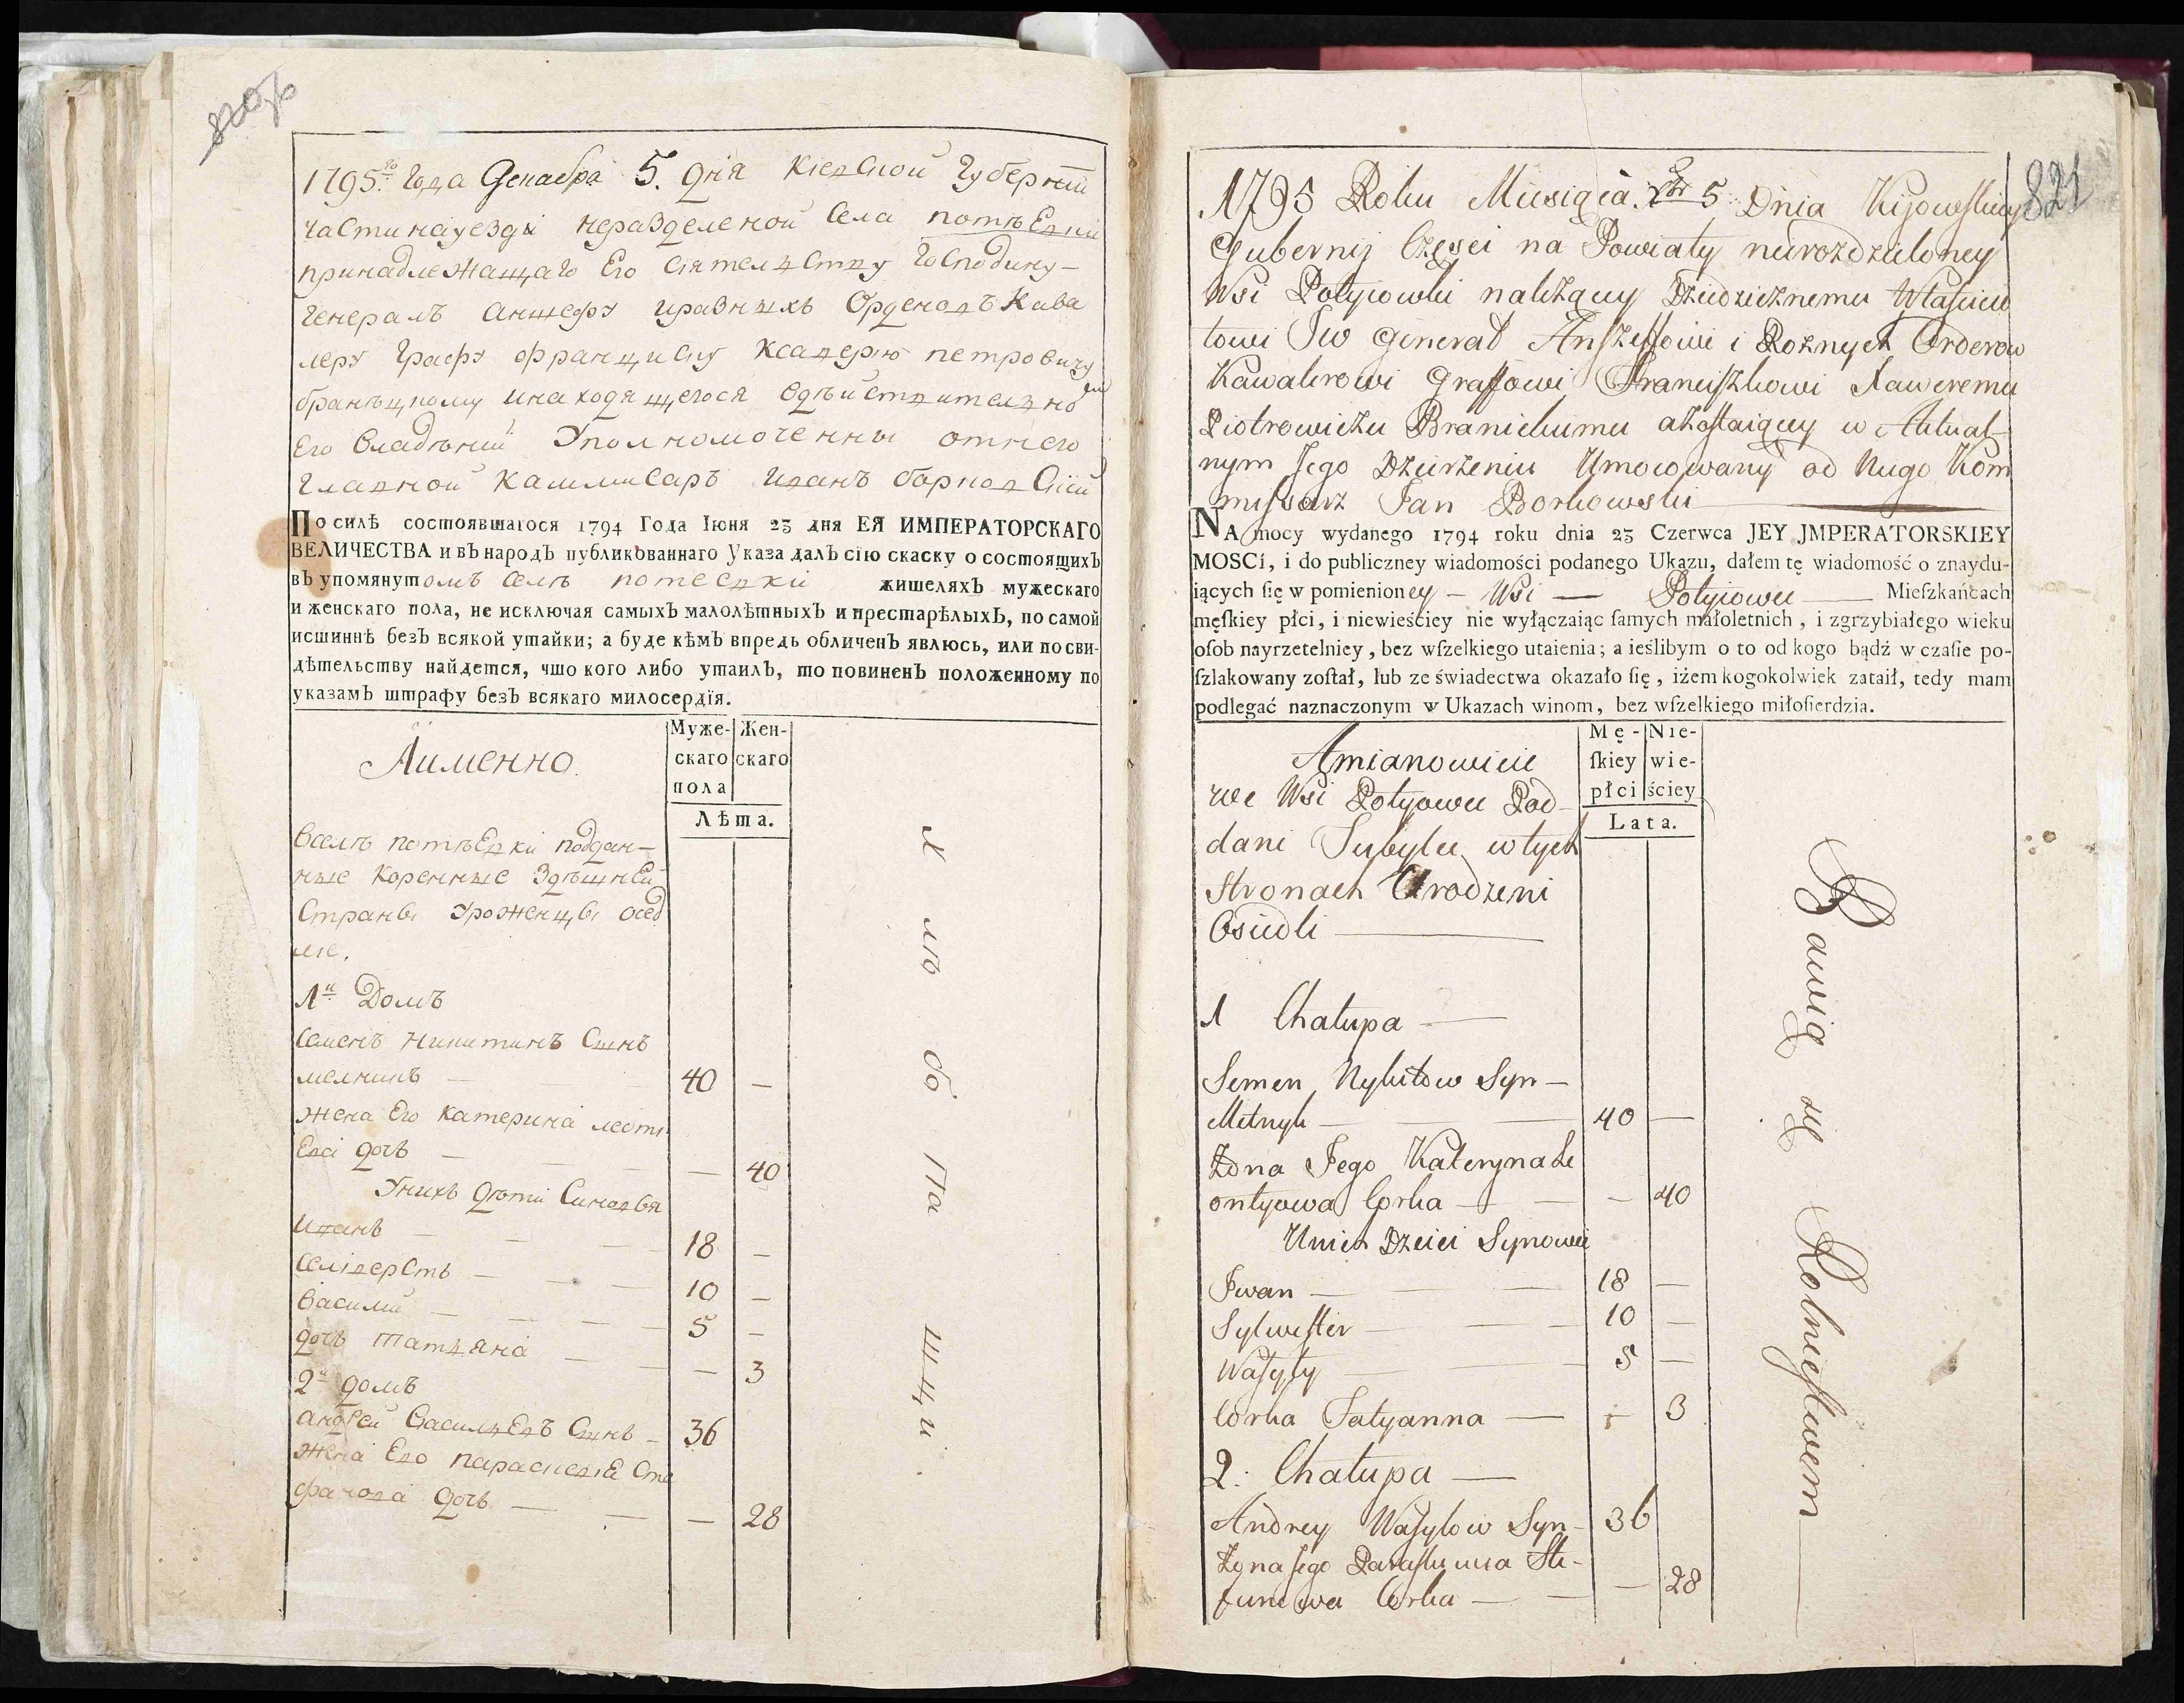 1795го Года Декабря 5. дня Киевской Губернїи
части науезды неразделеной Села потѣевки
принадлежащаго Его Сиятелству Господину
Генералъ Аншефу иразныхъ Орденовъ Кава
леру Графу Францишку Ксаверїю петровичу
браницкому инаходящегося вдѣйствителномъ
Его владѣнии Уполномоченны отнего
Главной Коммисаръ Иванъ борковскїй
По силѣ состоявшагося 1794 Года Іюня 23 дня ЕЯ ИМПЕРАТОРСКАГО
ВЕЛИЧЕСТВА и въ народъ публикованнаго Указа далъ сїю скаску о состоящихъ
въ упомянутомъ Селѣ потеевки жителяхъ мужескаго
и женскаго пола, не исключая самыхъ малолѣтныхъ и престарѣлыхъ, по самой
истиннѣ безъ всякой утайки; а буде кѣмъ впредь обличенъ явлюсь, или по сви-
дѣтельству найдется, что кого либо утаилъ, то повиненъ положенному по
указамъ штрафу безъ всякаго милосердїя.
Аименно.
Муже- Жен-
скаго скаго
пола
Лѣта.
Вселѣ потѣевки поддан-
ные Коренные Здѣшней
Страны Уроженцы осед
лие.
1й Домъ
Семенъ Никитинъ Сынъ
мелникъ — 40 —
жена Его Катерина леоти
Ева дочь — — 40
Уних дѣти Синовья
Иванъ — 18 —
Селиверстъ — 10 —
Василий — 5 —
дочь татяна — — 3
2й домъ
андрей Василевъ Сынъ — 36
жена Его парасковия Сте
фанова дочь — — 28
Хлѣбо Пашци
821
1795 Roku Miesiąca Xbr 5 Dnia Kijowskiey
Gubernij Części na Powiaty nierozdzieloney
Wsi Potyiowki należący Dziedzicznemu Właścicie
lowi Jw Generał Anszeffowi i Rożnych Orderow
Kawalerowi Graffowi Franciszkowi Xaweremu
Piotrowiczu Branickiemu azostaiącey w Aktual
nym Jego Dzierżeniu Umocowany od Niego Kom
missarz Jan Borkowski
NA mocy wydanego 1794 roku dnia 23 Czerwca JEY JMPERATORSKIEY
MOSCi, i do publiczney wiadomości podanego Ukazu, dałem tę wiadomość o znaydu-
iących ſię w pomienioney — Wsi — Potyiowce — Mieſzkańcach
męſkiey płci, i niewieściey nie wyłączaiąc ſamych małoletnich, i zgrzybiałego wieku
oſob nayrzetelniey, bez wſzelkiego utaienia; a ieślibym o to od kogo bądź w czaſie po-
ſzlakowany zoſtał, lub ze świadectwa okazało ſię, iżem kogokolwiek zataił, tedy mam
podlegać naznaczonym w Ukazach winom, bez wſzelkiego miłoſierdzia.
Amianowicie
Mę- Nie-
ſkiey wie-
płci ściey
Lata.
we Wsi Potyowce Pod-
dani Tubylce wtych
Stronach Urodzeni
Osiedli —
1 Chałupa —
Semen Nykitow Syn —
Melnyk — 40 —
Żona Jego Kateryna Le
ontyowa Corka — — 40
Unich Dzieci Synowie
Iwan — 18 —
Sylwester — 10 —
Wasyly — 5 —
Corka Tatyanna — — 3
2. Chałupa —
Andrey Wasylow Syn — 36
Żona Jego Paraskewia Ste-
fanowa Corka — — 28
Bawią się Rolnictwem